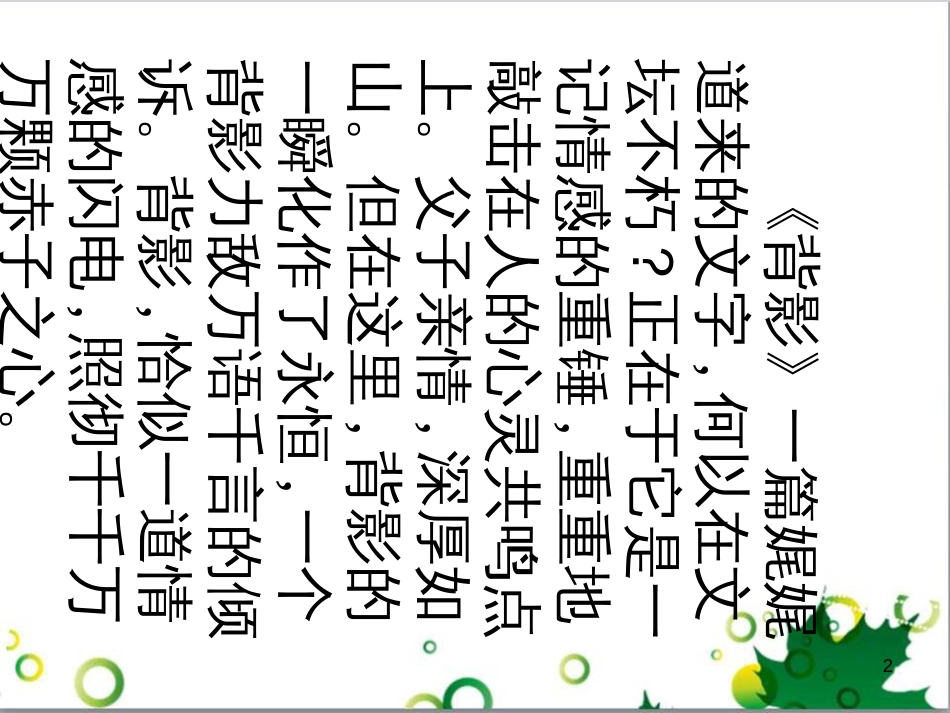 《背影》 一篇娓娓
道来的文字，何以在文
坛不朽？正在于它是一
记情感的重锤，重重地
敲击在人的心灵共鸣点
上。 父子亲情，深厚如
山。 但在这里，背影的
一瞬化作了永恒，一个
背影力敌万语千言的倾
诉。 背影，恰似一道情
感的闪电，照彻千千万
万颗赤子之心。
2